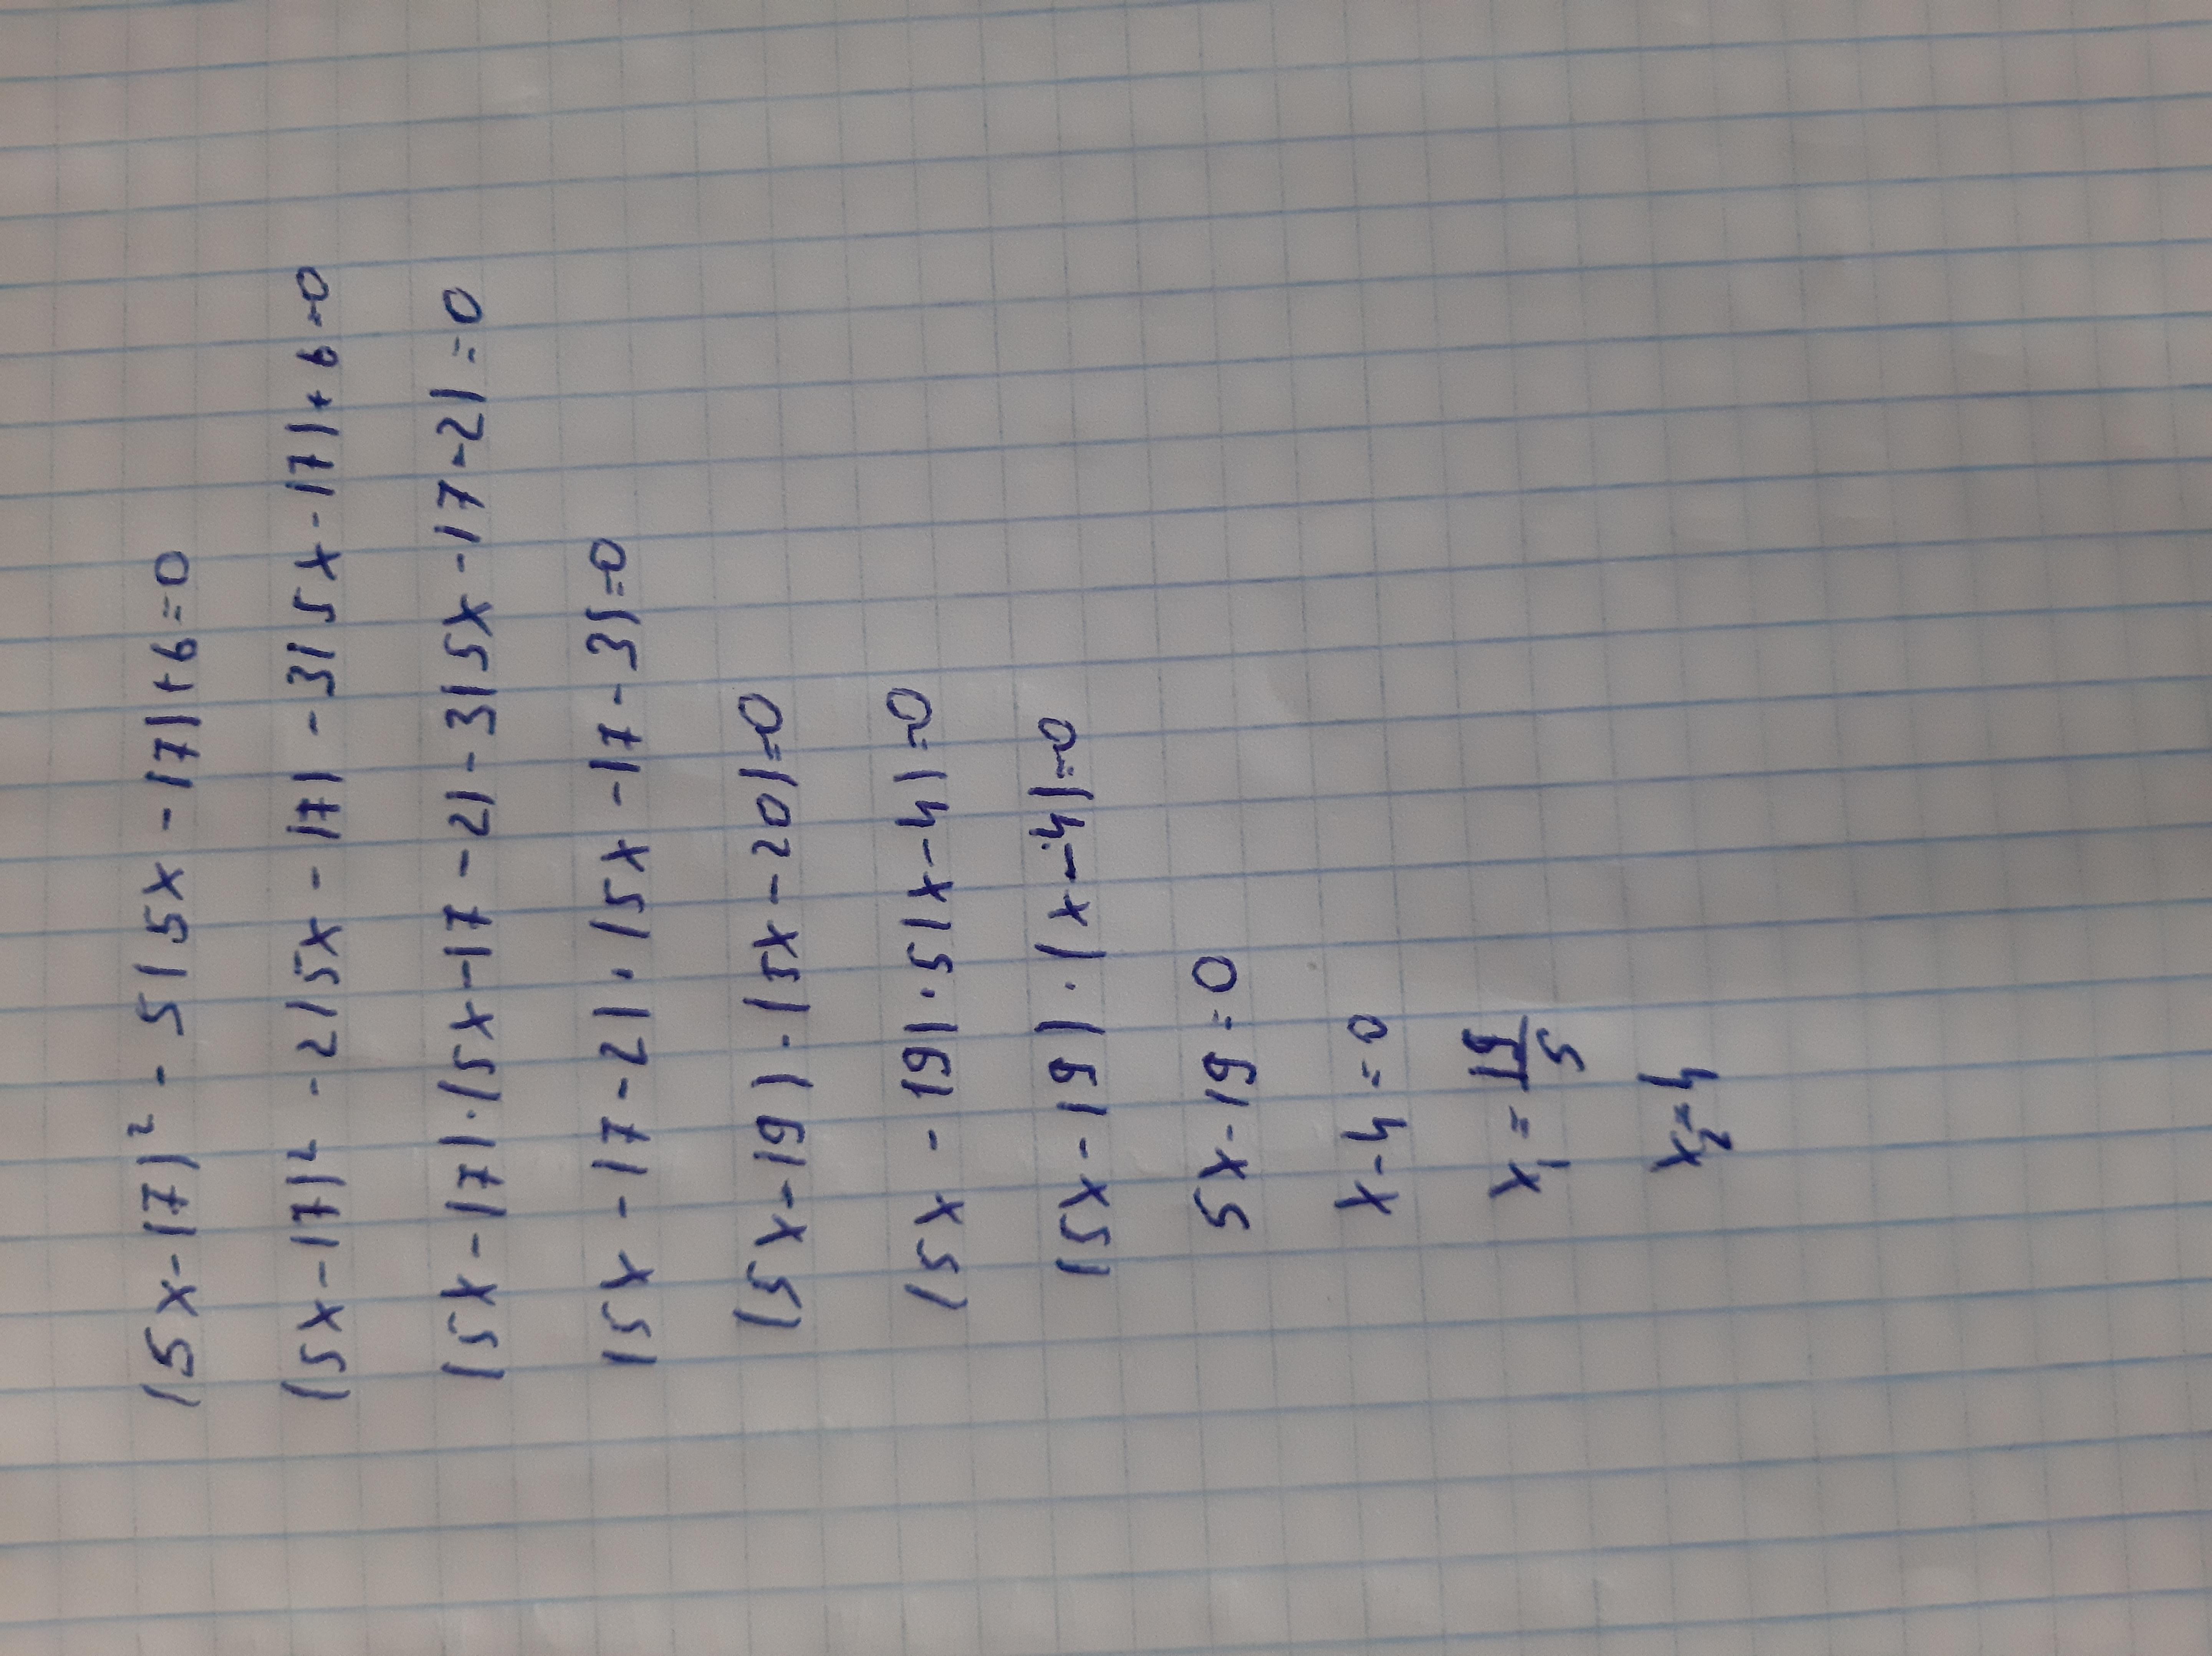 (5x-17)² - 5(5x-17)+6=0
(5x-17)² -2(5x-17)-3(5x-17)+6=0
(5x-17)·(5x-17-2)-3(5x-17-2)=0
(5x-17-2)·(5x-17-3)=0
(5x-19)·(5x-20)=0
(5x-19)·5(x-4)=0
(5x-19)·(x-4)=0
5x-19=0
x-4=0
x₁=19/5
x₂=4